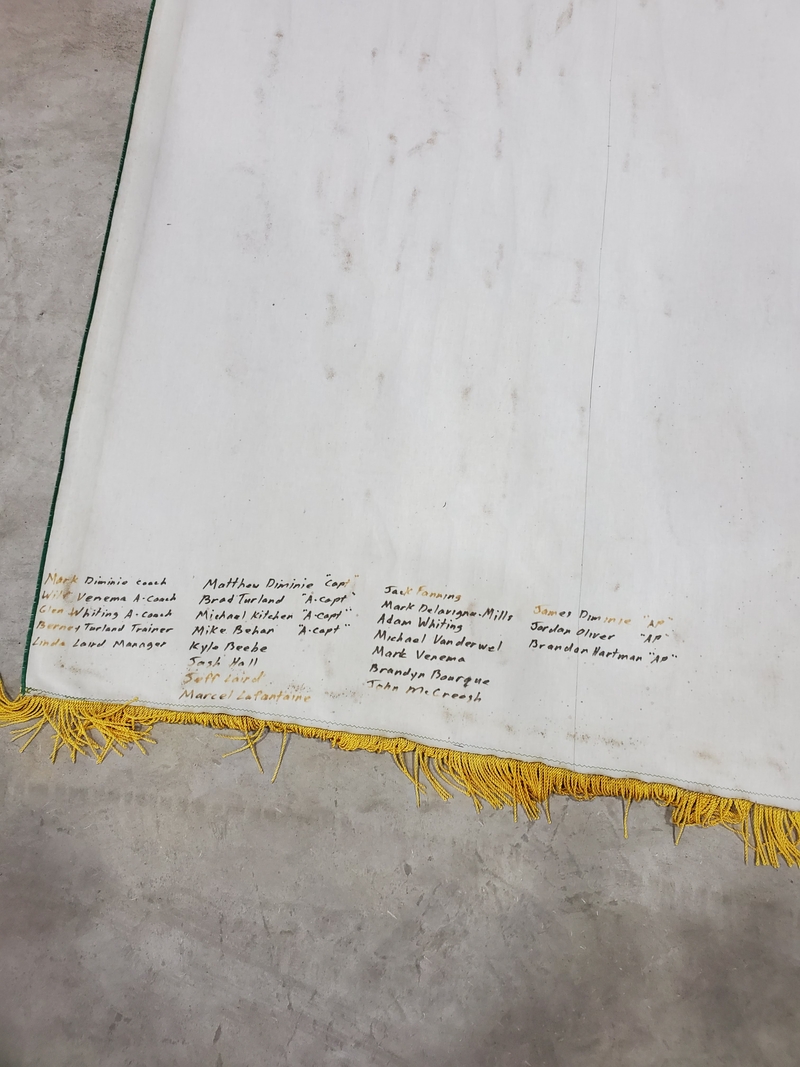 Mark Diminie coach
Venema A-Coach
Glen Whiting A-Coach
Berney Turland Trainer
Linda Laird Manager
Matthew Diminie "Capt"
Brad Turland "A-Capt"
Michael Kitchen "A-Capt"
Mike Behan "A-Capt"
Kyle Beebe
Josh Hall
Jeff Laird
Marcel Lafontaine
Jack Fanning
Mark Delavigne-Mills
Adam Whiting
Michael Vanderwel
Mark Venema
Brandyn Bourque
John McCreegh
James Diminie "AP"
Jordan Oliver "AP"
Brandon Hartman "AP"